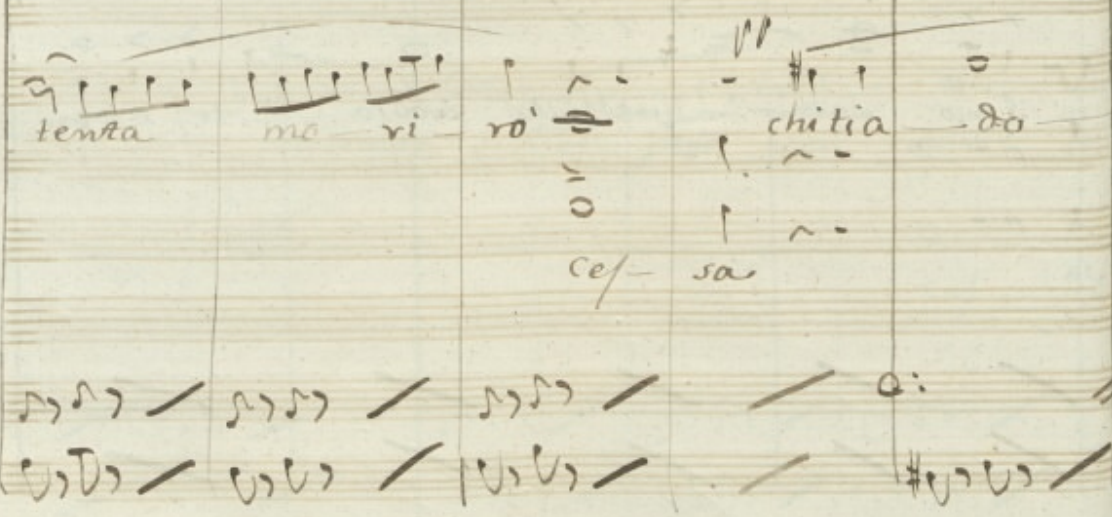 tenta mo ri rò chitia do
cef sa